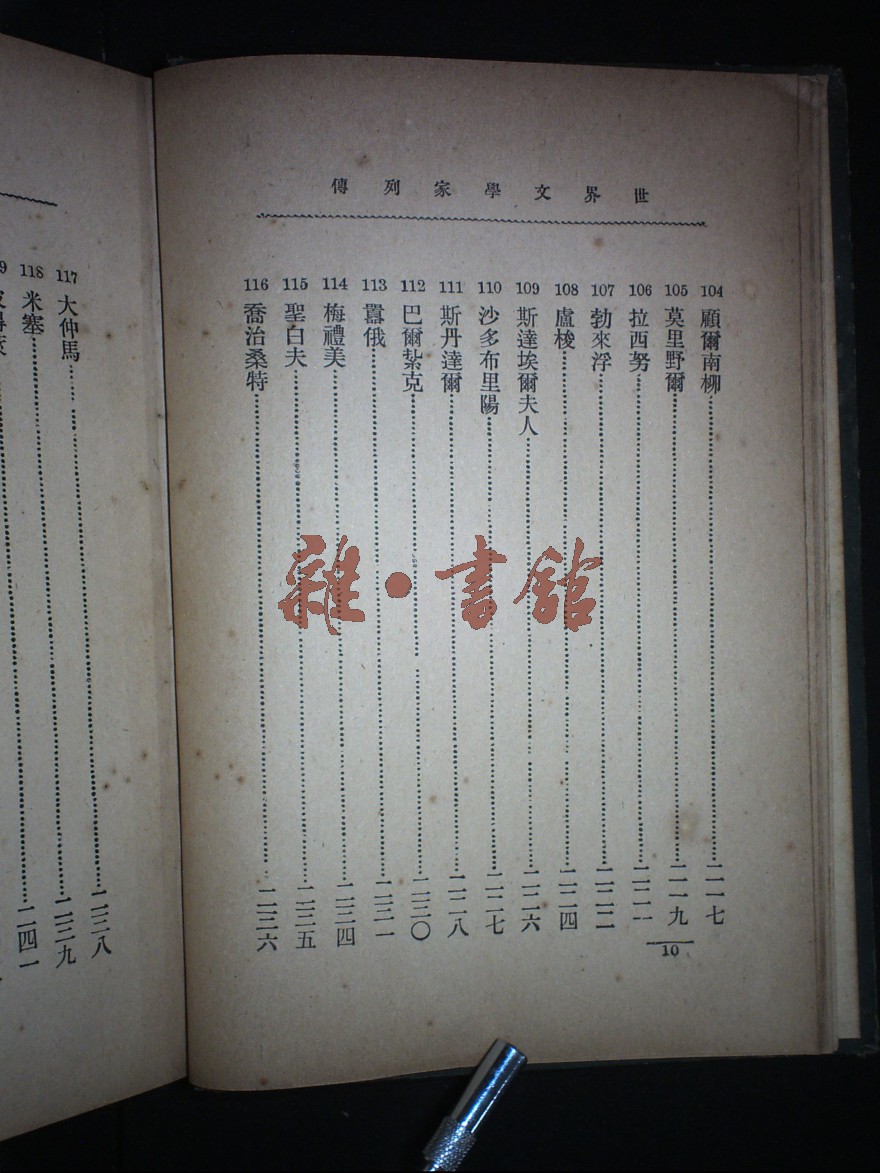 世界文學家列傳
104 顧爾南柳 二一七
105 莫里野爾 二一九
106 拉西努 二二一
107 勃來浮 二二二
108 盧梭 二二四
109 斯達埃爾夫人 二二六
110 沙多布里陽 二二七
111 斯丹達爾 二二八
112 巴爾紮克 二三〇
113 囂俄 二三一
114 梅禮美 二三四
115 聖白夫 二三五
116 喬治桑特 二三六
10
117 大仲馬 二三八
118 米塞 二三九
二四一
雜·書館